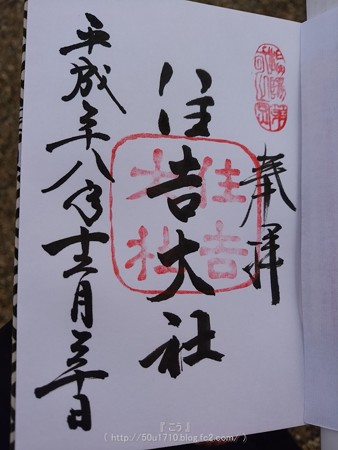 奉拝
住吉大社
住吉大社
平成二十八年十二月三十日
『 こう 』
( http://50u1710.blog.fc2.com/ )